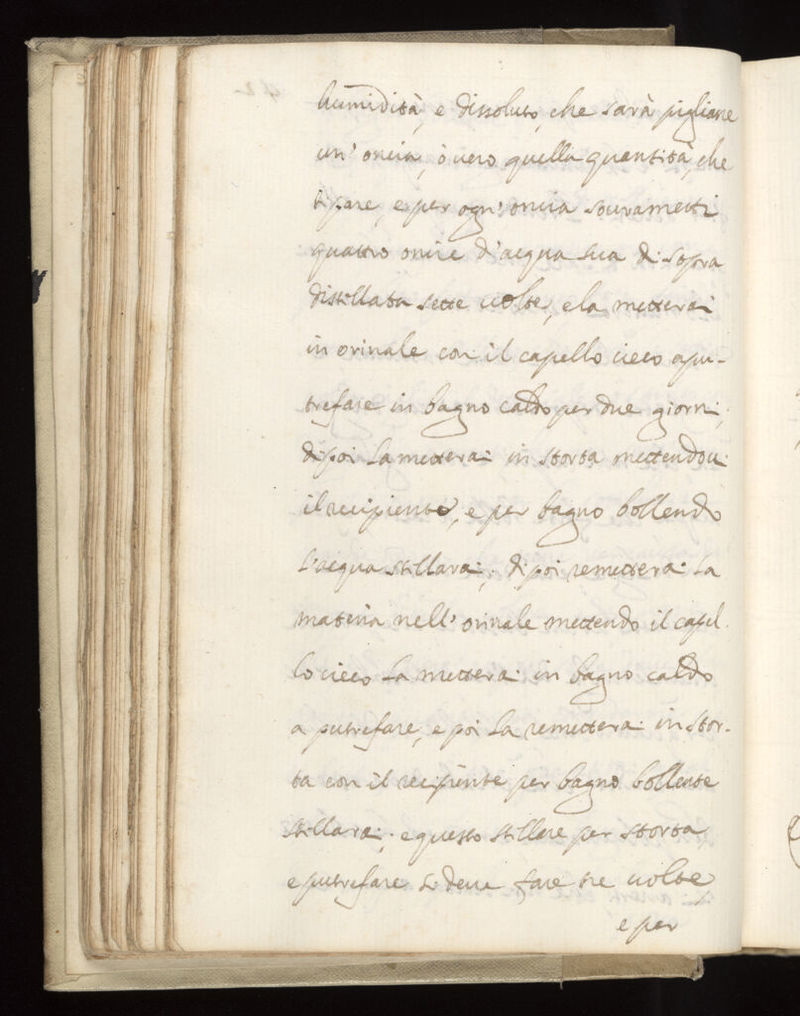 humidità, e dissoluto, che sarà pigliane
un' oncia, ò uero quella quantità, che
ti pare, e per ogn' oncia souvametti
quattro oncie d'acqua sua di sopra
distillata sette uolte, e la metterai
in orinale con il capello cieco apu-
trefare in bagno caldo per due giorni;
di poi La metterai in storta mettendoui
il recipiente, e per bagno bollendo
L'acqua stillarai; di poi remetterai La
materia nell' orinale mettendo il capel
lo cieco La metterai in bagno caldo
a putrefare, e poi La remetterai in stor-
ta con il recipiente per bagno bollente
stillarai; e questo stillare per storta
e putrefare si deue fare tre uolte,
e per